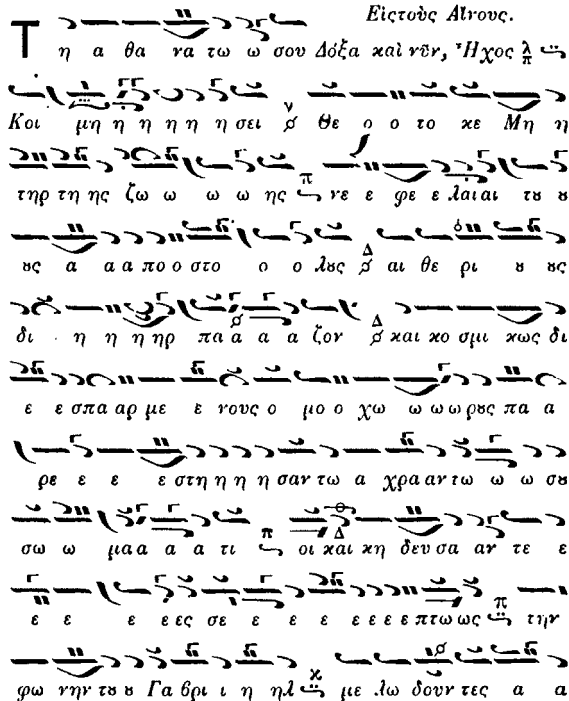 Εἰς τοὺς Αἴνους.
Τ η α θα να τω ω σου Δόξα καὶ νῦν, Ἦχος λ π
Κοι μη η η η η σει ν Θε ο ο το κε Μη η
τηρ τη ης ζω ω ω ω ης π νε ε φε ε λαι αι τȣ ȣ
ȣς α α α πο ο στο ο ο λȣς Δ αι θε ρι ȣ ȣς
δι η η η ηρ πα α α α ζον Δ και κο σμι κως δι
ε ε σπα αρ με ε νους ο μο ο χω ω ω ω ρȣς πα α
ρε ε ε ε στη η η η σαν τω α χρα αν τω ω ω σȣ
σω ω μα α α α τι π οι Δ και κη δευ σα αν τε ε
ε ε ε ε ες σε ε ε ε ε ε ε ε πτω ως π την
φω νην τȣ ȣ Γα βρι ι η ηλ κ με λω δουν τες α α